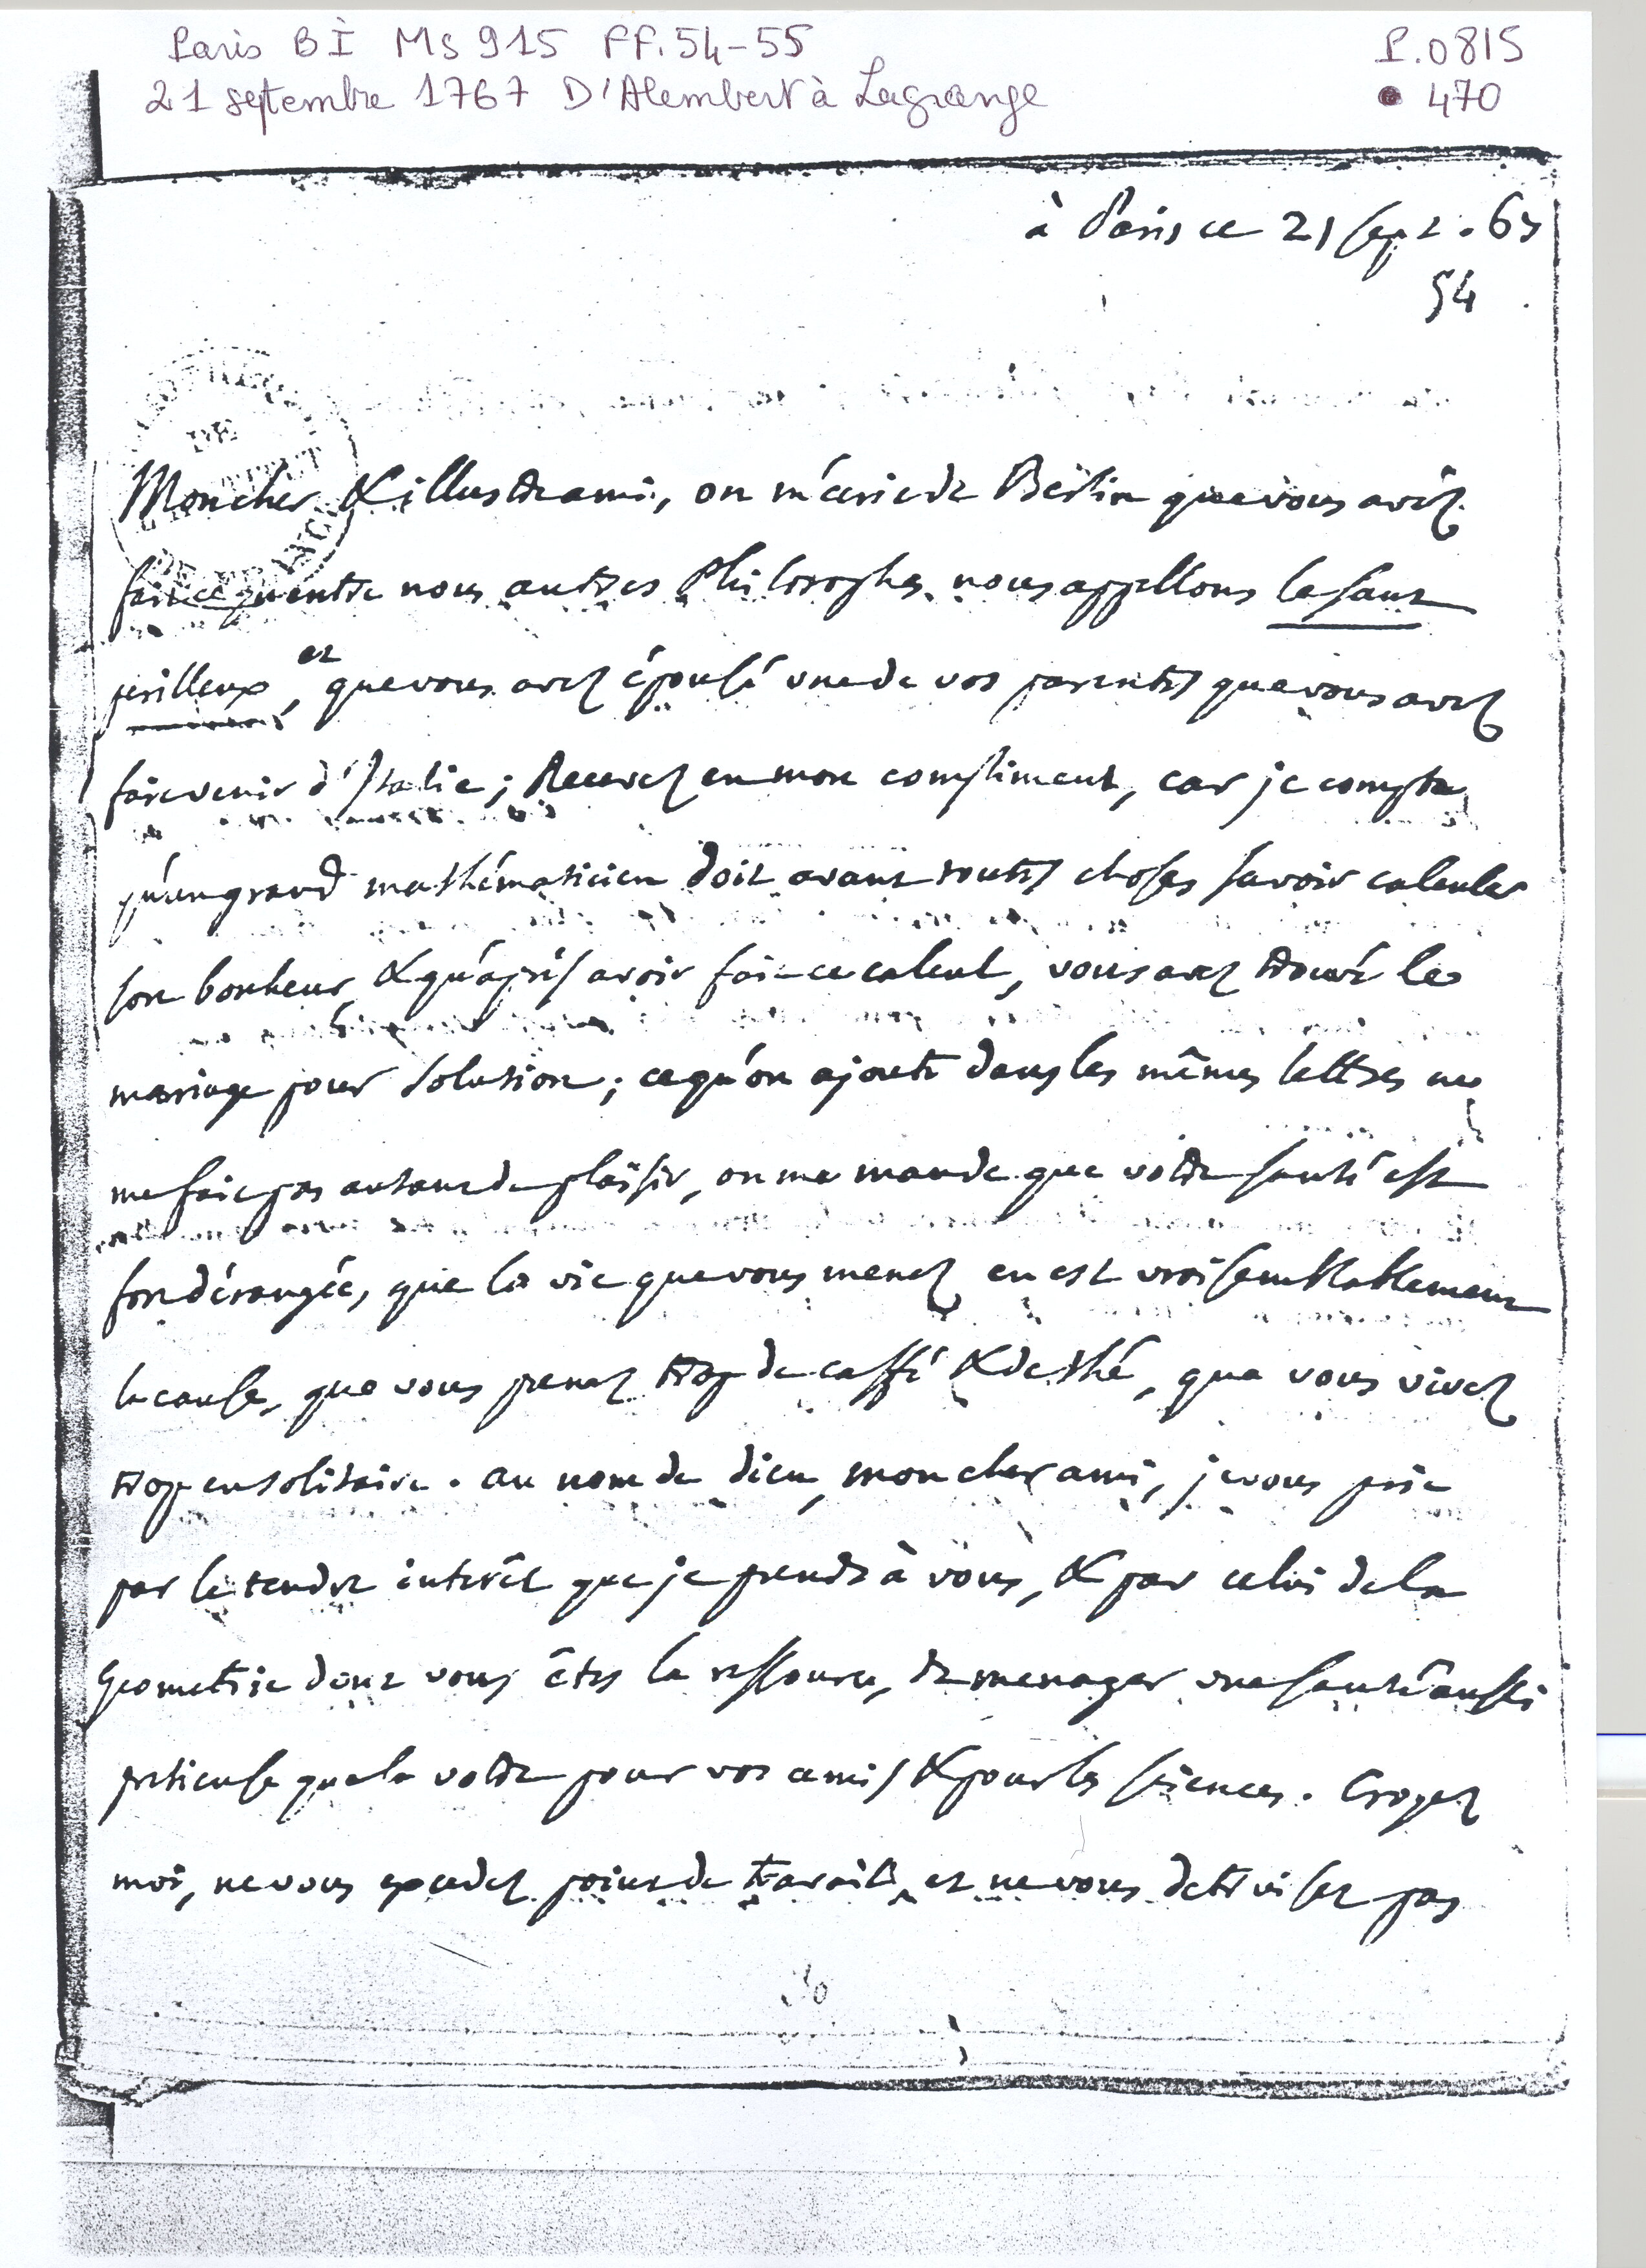 Paris BI MS 915 FF. 54-55
P.0815
21 septembre 1767 D'Alembert à Lagrange
470
à Paris ce 21 sept. 67
54
DE
Mon cher & illustre ami, on m'écrit de Berlin que vous avéz
fait ce qu'entre nous autres Philosophes nous appellons le saut
perilleux, et que vous avez épousé une de vos parentes que vous avez
fait venir d'Italie; Recevez en mon compliment, car je compte
qu'un grand mathématicien doit avant toutes choses savoir calculer
son bonheur, & qu'après avoir fait ce calcul, vous avez trouvé le
mariage pour solution; ce qu'on ajoute dans les mêmes lettres ne
me fait pas autant de plaisir, on me mande que votre santé est
fort dérangée, que la vie que vous menez en est vraisemblablement
la cause, que vous prenez trop de caffé & de thé, que vous vivez
trop en solitaire. au nom de dieu, mon cher ami, je vous prie
par le tendre intérêt que je prends à vous, & par celui de la
Geometrie dont vous êtes la ressource, de menager une santé aussi
pretieuse que la votre pour vos amis & pour les sciences. Croyez
moi, ne vous excedez point de travail, et ne vous detruisez pas